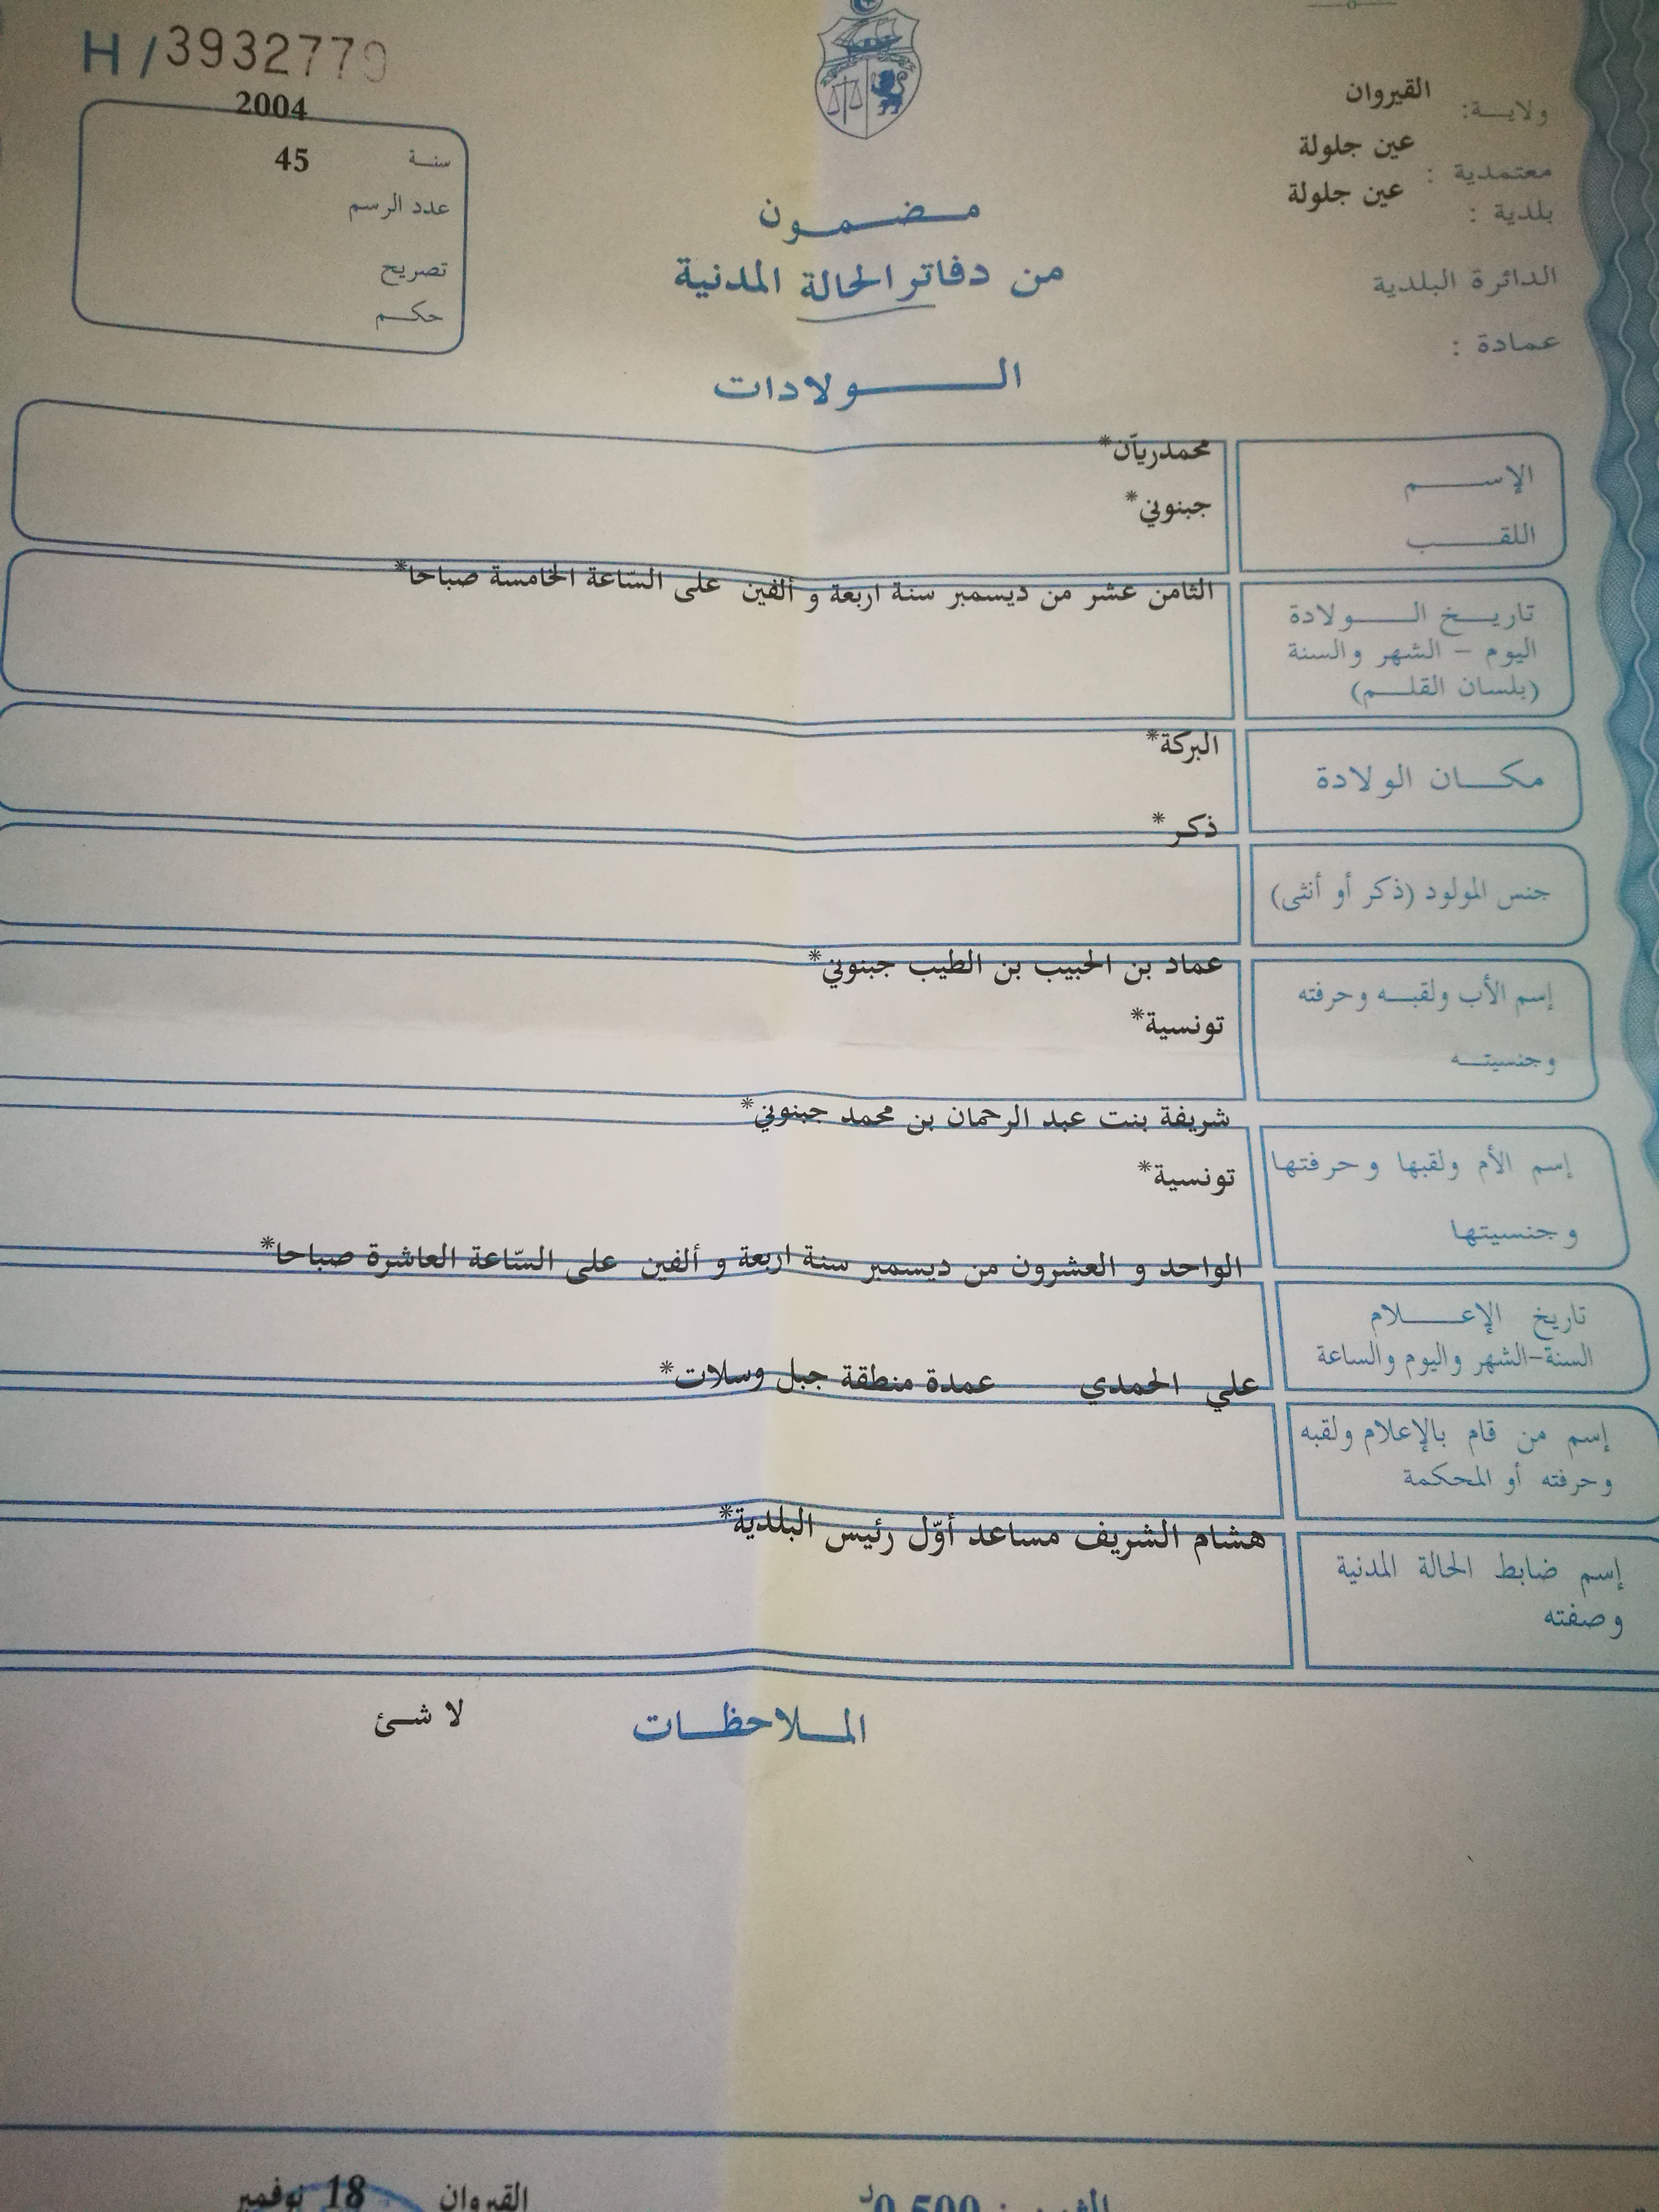 H / 3932779
2004
سنة 45
عدد الرسم
تصريح
حكم
ولاية: القيروان
معتمدية : عين جلولة
بلدية : عين جلولة
الدائرة البلدية
عمادة :
مضمون
من دفاتر الحالة المدنية
الولادات
الإسم محمدريآن*
اللقب جبنوني*
تاريخ الولادة الثامن عشر من ديسمبر سنة اربعة و ألفين على السّاعة الخامسة صباحا*
اليوم – الشهر والسنة
(بلسان القلم)
مكان الولادة البركة*
جنس المولود (ذكر أو أنثى) ذكر*
إسم الأب ولقبه وحرفته عماد بن الحبيب بن الطيب جبنوني*
وجنسيته تونسية*
إسم الأم ولقبها وحرفتها شريفة بنت عبد الرحمان بن محمد جبنوني*
وجنسيتها تونسية*
تاريخ الإعلام الواحد و العشرون من ديسمبر سنة اربعة و ألفين على السّاعة العاشرة صباحا*
السنة-الشهر واليوم والساعة
إسم من قام بالإعلام ولقبه علي الحمدي عمدة منطقة جبل وسلات*
وحرفته أو المحكمة
إسم ضابط الحالة المدنية هشام الشريف مساعد أوّل رئيس البلدية*
وصفته
الملاحظات لا شئ
القيروان 18 نوفمبر
0,500 د